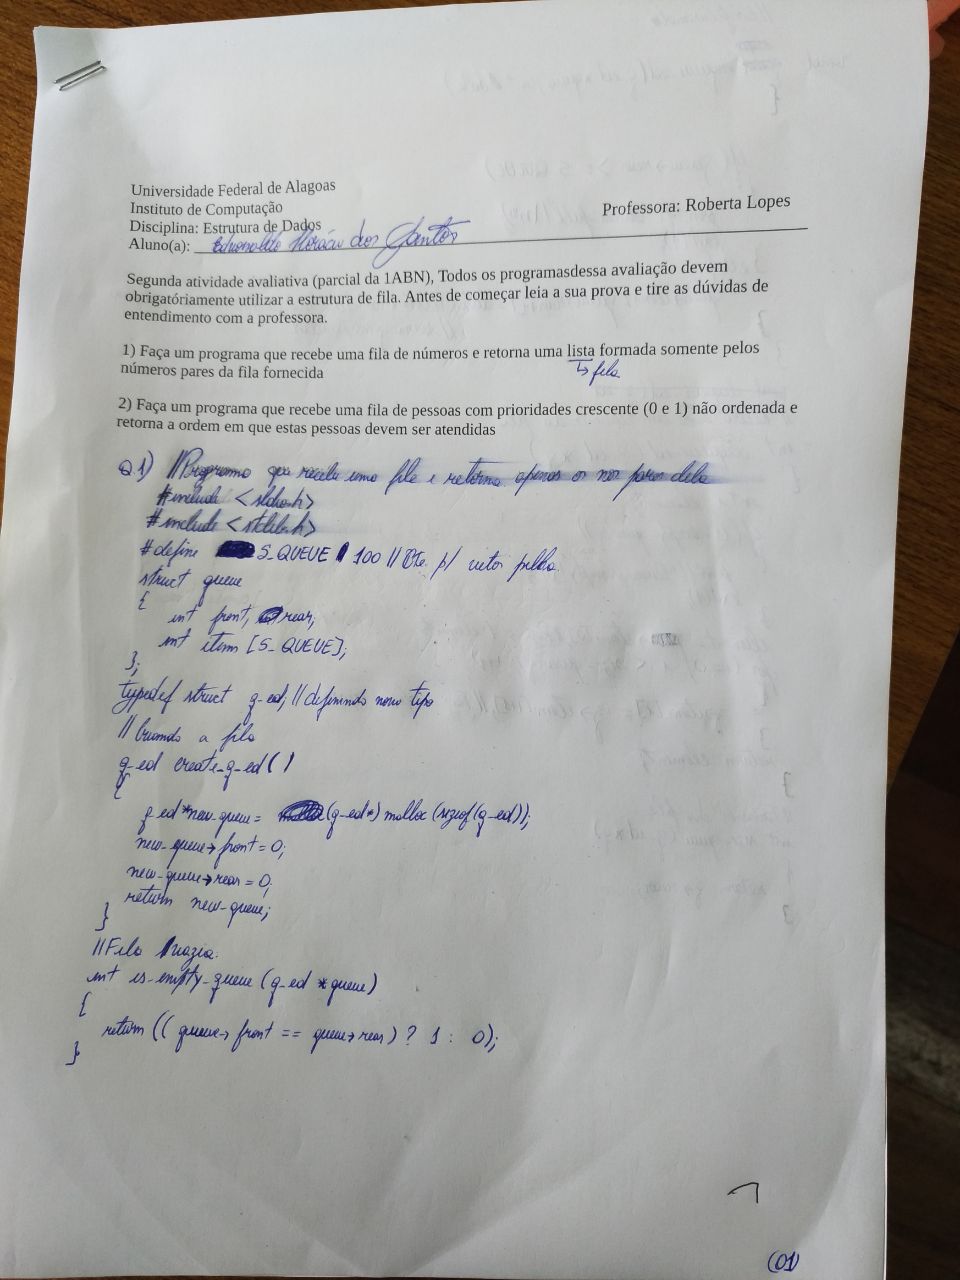 Universidade Federal de Alagoas
Instituto de Computação
Professora: Roberta Lopes
Disciplina: Estrutura de Dados
Aluno(a): dos Santos
Segunda atividade avaliativa (parcial da 1ABN), Todos os programasdessa avaliação devem
obrigatóriamente utilizar a estrutura de fila. Antes de começar leia a sua prova e tire as dúvidas de
entendimento com a professora.
1) Faça um programa que recebe uma fila de números e retorna uma lista formada somente pelos
↳ fila
números pares da fila fornecida
2) Faça um programa que recebe uma fila de pessoas com prioridades crescente (0 e 1) não ordenada e
retorna a ordem em que estas pessoas devem ser atendidas
Q1) //Programa que recebe uma fila e retorna apenas os nos pares dela
#include <stdio.h>
#include <stdlib.h>
#define S_QUEUE 100 // Cte. p/ vetor
struct queue
{
int front, rear;
int item [S_QUEUE];
};
typedef struct q_ed; //definindo novo tipo
//Criando a fila
q_ed create_q_ed()
{
q_ed *new_queue = (q_ed*) malloc (sizeof(q_ed));
new_queue→front = 0;
new_queue→rear = 0;
return new_queue;
}
//Fila vazia.
int is_empty_queue (q_ed *queue)
{
return (( queue→front == queue→rear ) ? 1 : 0);
}
(01)